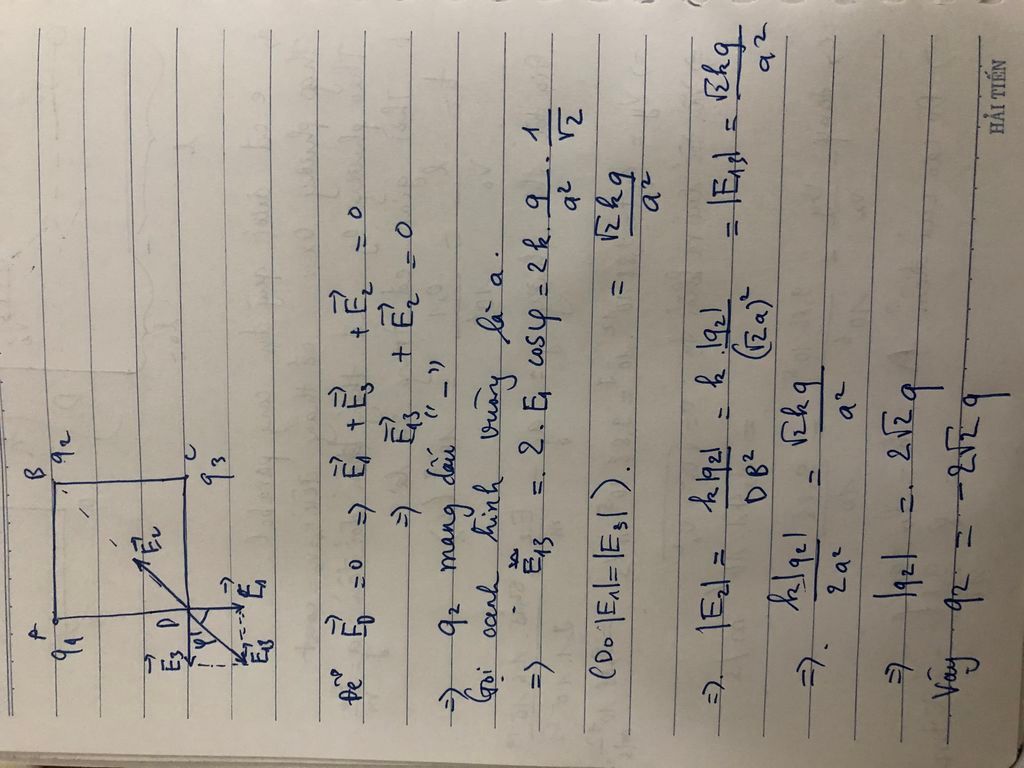 A B
q1 q2
E⃗2
E⃗3 D C
φ q3
E⃗13 E⃗1
Để E⃗D = 0 => E⃗1 + E⃗3 + E⃗2 = 0
=> E⃗13 + E⃗2 = 0
=> q2 mang dấu "-"
Gọi cạnh hình vuông là a.
=> E13 = 2. E1 cosφ = 2k. q/a² . 1/√2
(Do |E1| = |E3|). = √2kq/a²
=>. |E2| = k|q2|/DB² = k.|q2|/(√2a)² = |E13| = √2kq/a²
=>. k|q2|/2a² = √2kq/a²
=> |q2| = 2√2 q
Vậy q2 = -2√2 q
HẢI TIẾN